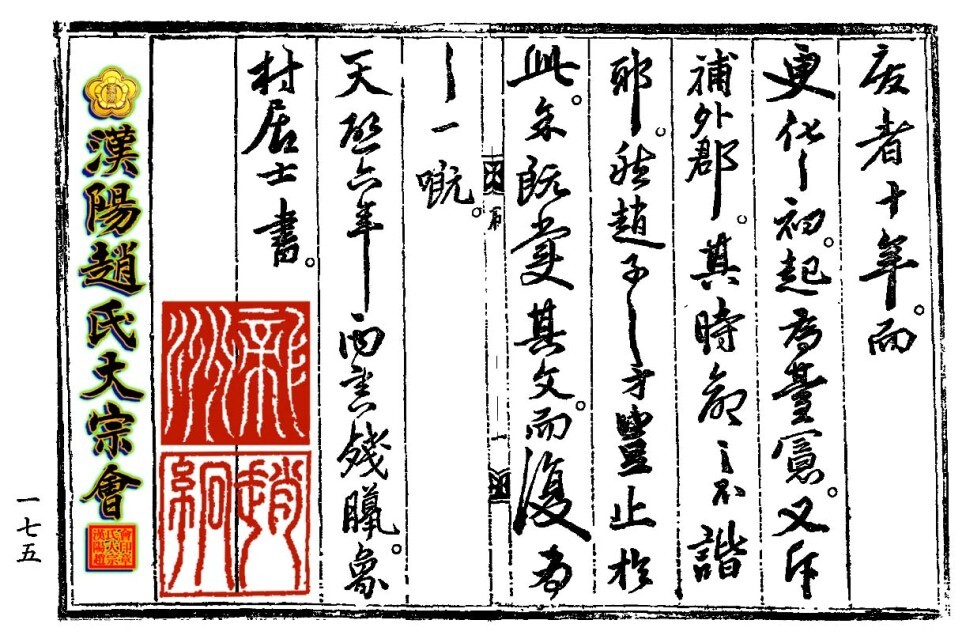 廢者十年。而
更化之初。起爲臺憲。又斥
補外郡。其時命之不諧
耶。然趙子之才豈止於
此。余既愛其文。而復爲
之一嘅。
天啓六年丙寅殘臘。象
村居士書。
趙絅
漢陽趙氏大宗會
一七五